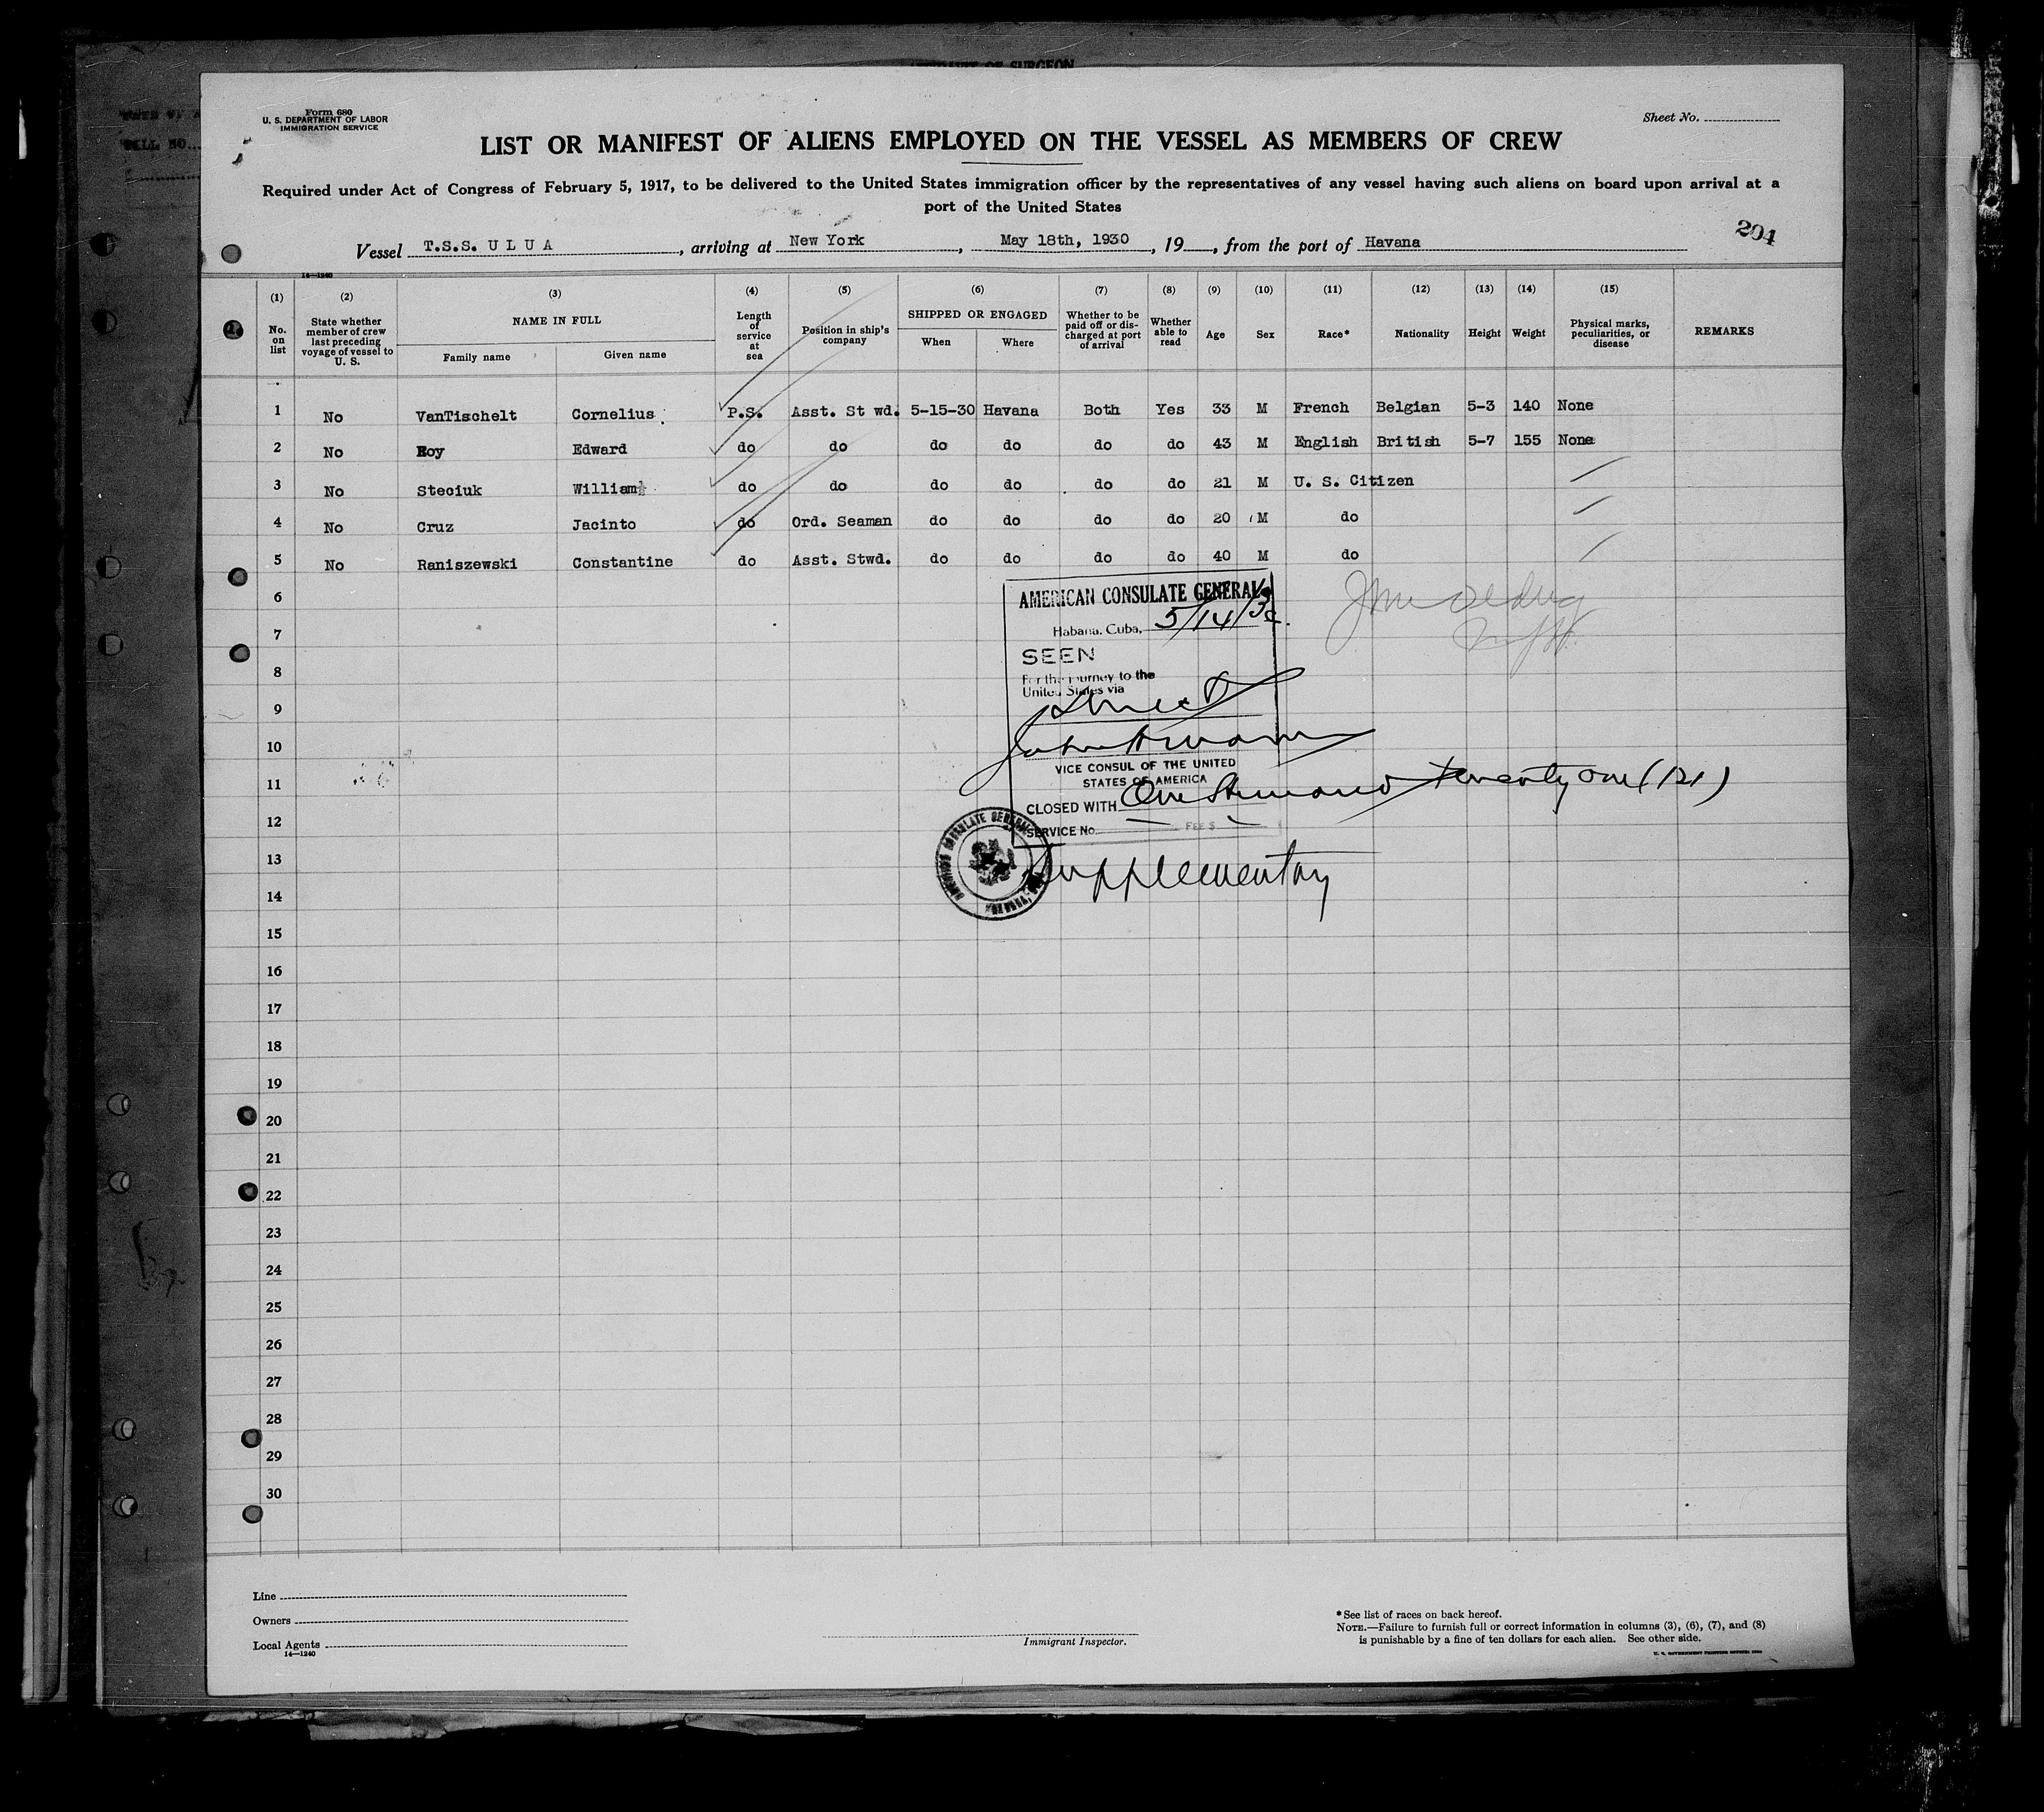 Form 680
U. S. DEPARTMENT OF LABOR
IMMIGRATION SERVICE
Sheet No.
LIST OR MANIFEST OF ALIENS EMPLOYED ON THE VESSEL AS MEMBERS OF CREW
Required under Act of Congress of February 5, 1917, to be delivered to the United States immigration officer by the representatives of any vessel having such aliens on board upon arrival at a
port of the United States
204
Vessel T.S.S. U L U A , arriving at New York , May 18th, 1930 , 19 , from the port of Havana
14—1240
(1) (2) (3) (4) (5) (6) (7) (8) (9) (10) (11) (12) (13) (14) (15)
No. on list
State whether member of crew last preceding voyage of vessel to U. S.
NAME IN FULL
Family name
Given name
Length of service at sea
Position in ship's company
SHIPPED OR ENGAGED
When
Where
Whether to be paid off or discharged at port of arrival
Whether able to read
Age
Sex
Race*
Nationality
Height
Weight
Physical marks, peculiarities, or disease
REMARKS
1 No VanTischelt Cornelius P.S. Asst. St wd. 5-15-30 Havana Both Yes 33 M French Belgian 5-3 140 None
2 No Roy Edward do do do do do do 43 M English British 5-7 155 None
3 No Steciuk William do do do do do do 21 M U. S. Citizen
4 No Cruz Jacinto do Ord. Seaman do do do do 20 M do
5 No Raniszewski Constantine do Asst. Stwd. do do do do 40 M do
6
7
8
9
10
11
12
13
14
15
16
17
18
19
20
21
22
23
24
25
26
27
28
29
30
AMERICAN CONSULATE GENERAL
Habana, Cuba, 5/14/30
SEEN
For the journey to the
United States via
direct
VICE CONSUL OF THE UNITED
STATES OF AMERICA
CLOSED WITH One Hundred twenty one (121)
SERVICE No. FEE $
Supplementary
Line
Owners
Local Agents
14—1240
Immigrant Inspector.
*See list of races on back hereof.
NOTE.—Failure to furnish full or correct information in columns (3), (6), (7), and (8)
is punishable by a fine of ten dollars for each alien. See other side.